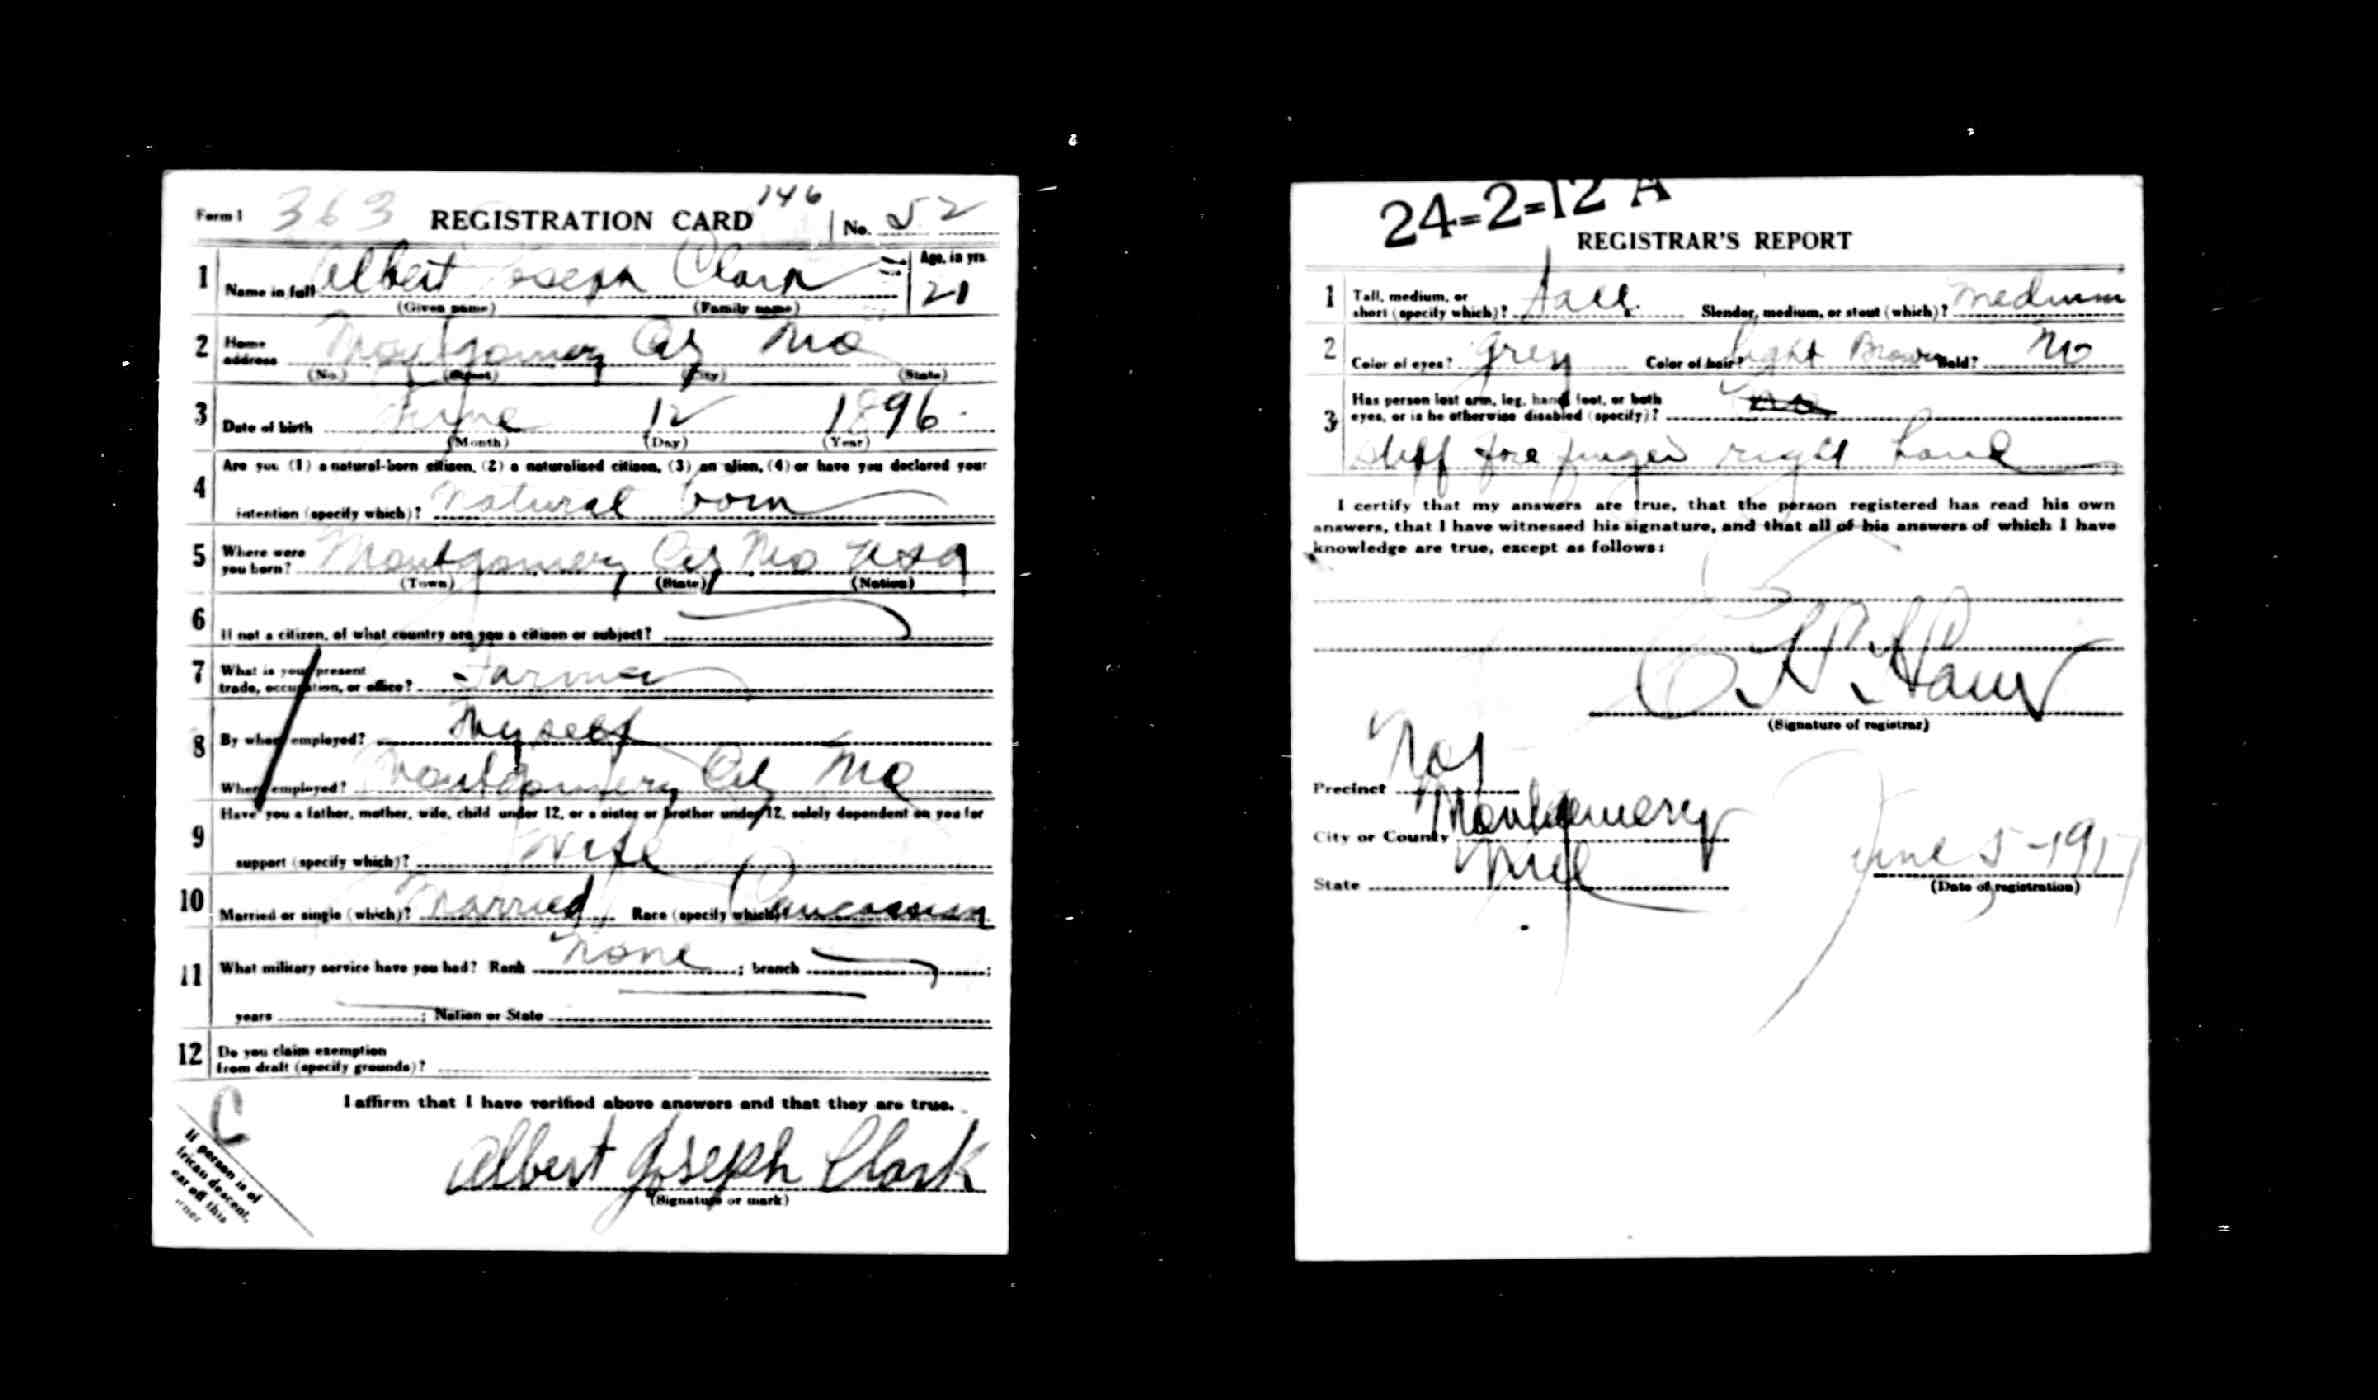 Form 1 363 REGISTRATION CARD 146 No. 52
1 Name in full Albert Joseph Clark Age, in yrs. 21
(Given name) (Family name)
2 Home address Montgomery City Mo
(No.) (Street) (City) (State)
3 Date of birth June 12 1896
(Month) (Day) (Year)
4 Are you (1) a natural-born citizen, (2) a naturalized citizen, (3) an alien, (4) or have you declared your
intention (specify which)? Natural born
5 Where were you born? Montgomery City Mo USA
(Town) (State) (Nation)
6 If not a citizen, of what country are you a citizen or subject?
7 What is your present trade, occupation, or office? Farmer
8 By whom employed? Myself
Where employed? Montgomery City Mo
9 Have you a father, mother, wife, child under 12, or a sister or brother under 12, solely dependent on you for
support (specify which)? Wife
10 Married or single (which)? Married Race (specify which)? Caucassian
11 What military service have you had? Rank None ; branch ;
years ; Nation or State
12 Do you claim exemption
from draft (specify grounds)?
I affirm that I have verified above answers and that they are true.
C
If person is of
frican descent,
ear off this
rner
Albert Joseph Clark
(Signature or mark)
24-2-12 A
REGISTRAR'S REPORT
1 Tall, medium, or short (specify which)? Tall. Slender, medium, or stout (which)? Medium
2 Color of eyes? Grey Color of hair? Light Brown Bald? No
3 Has person lost arm, leg, hand, foot, or both
eyes, or is he otherwise disabled (specify)? No
stiff fore finger right hand
I certify that my answers are true, that the person registered has read his own
answers, that I have witnessed his signature, and that all of his answers of which I have
knowledge are true, except as follows:
(Signature of registrar)
Precinct No 1
City or County Montgomery
State June 5-1917
(Date of registration)